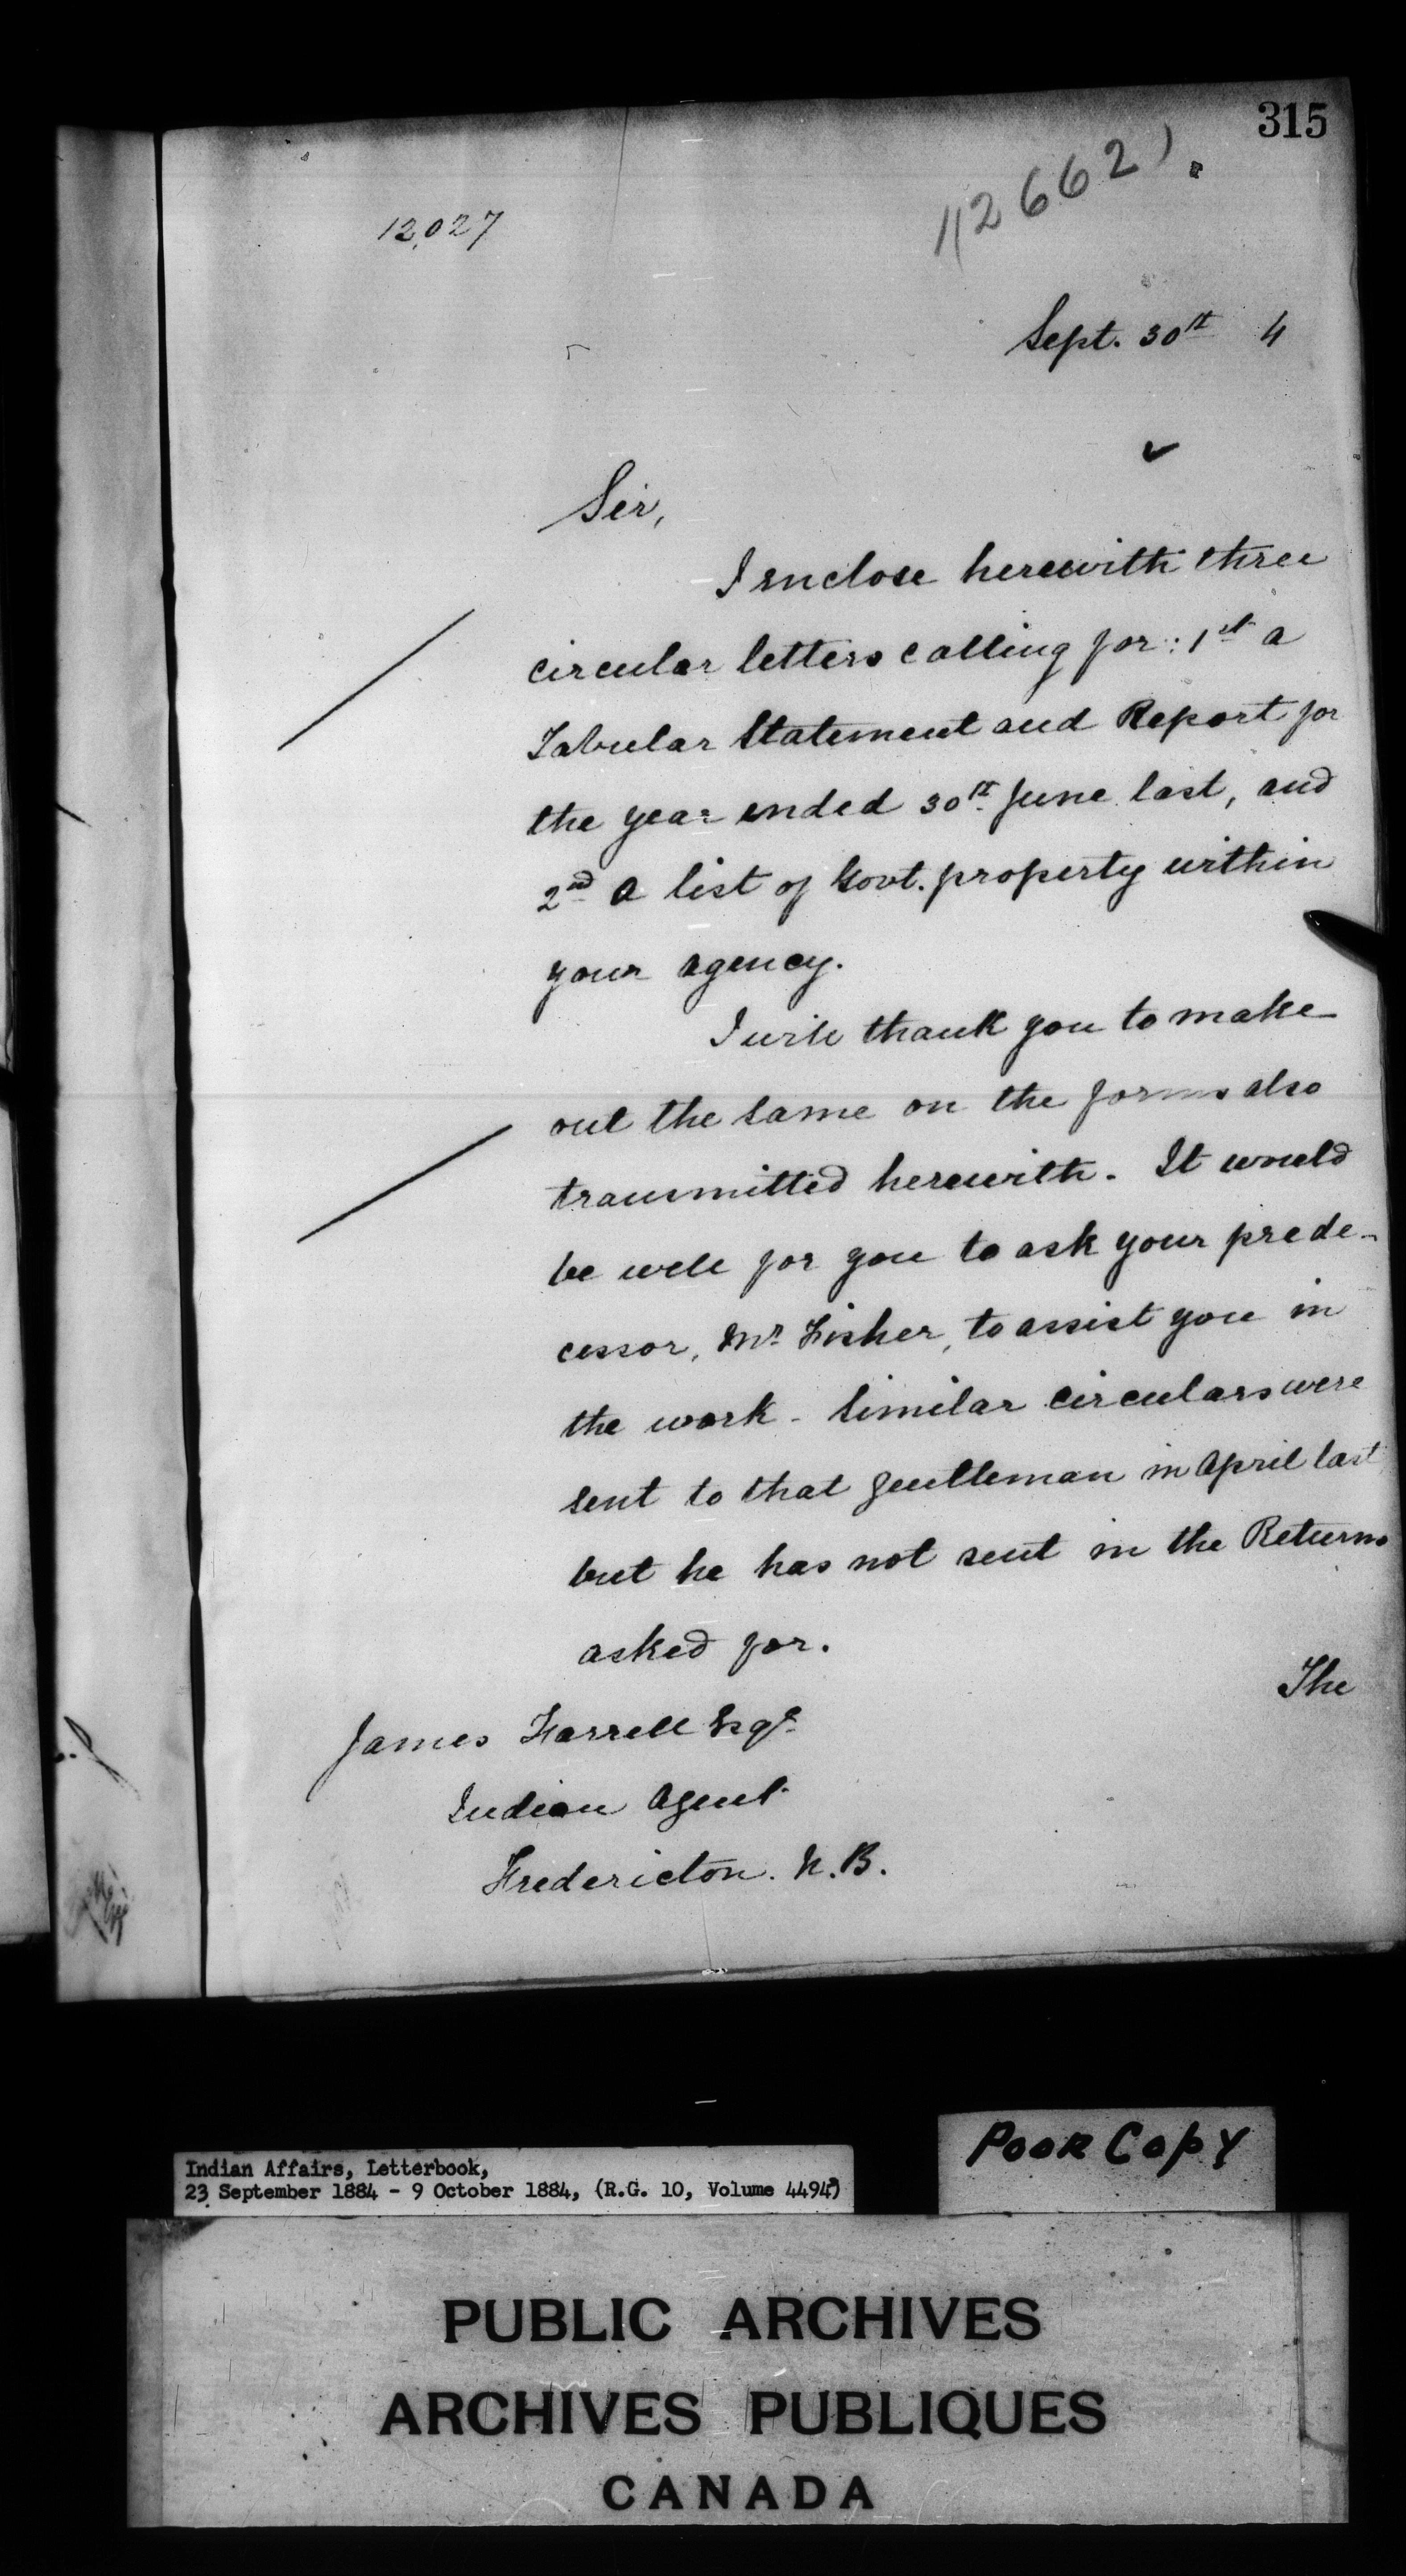 315
12,027
12662
Sept. 30th 4
Sir,
I enclose herewith three
circular letters calling for: 1st a
Tabular Statement and Report for
the year ended 30th June last, and
2nd a list of Govt. property within
your agency.
I will thank you to make
out the same on the forms also
transmitted herewith. It would
be well for you to ask your prede-
cessor, Mr. Fisher, to assist you in
the work - Similar circulars were
sent to that gentleman in April last
but he has not sent in the Returns
asked for.
The
James Farrell Esqr.
Indian Agent
Fredericton. N.B.
Indian Affairs, Letterbook,
23 September 1884 - 9 October 1884, (R.G. 10, Volume 4494)
POOR COPY
PUBLIC ARCHIVES
ARCHIVES PUBLIQUES
CANADA